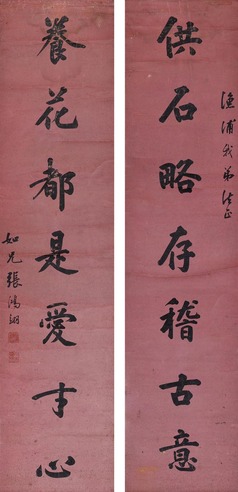 漁浦我弟法正
供石略存稽古意
養花都是愛才心
如兄張鴻翊